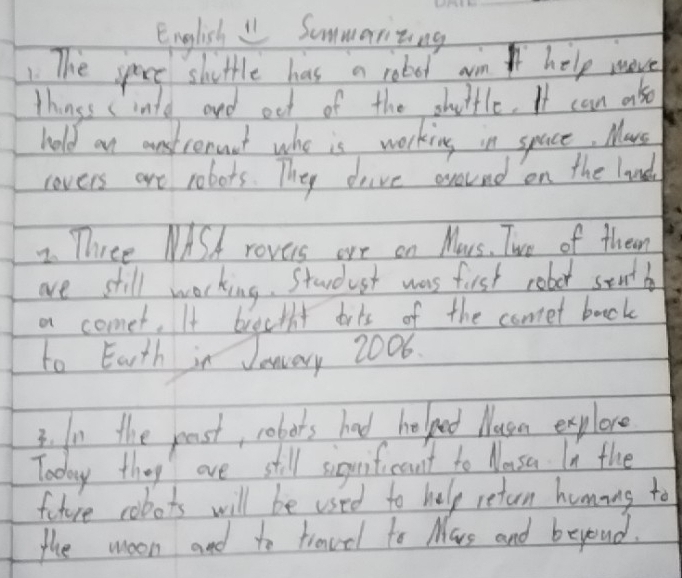 English !! Summarizing
1. The space shuttle has a robot arm It help move
things into and out of the shuttle. It can also
hold an austronut who is working in space. Mars
rovers are robots. They drive around on the land
2. Three NASA rovers are on Mars. Two of them
are still working. Stardust was first robot sent to
a comet. It bits of the comet back
to Earth in January 2006.
3. In the past, robots had helped Nasa explore.
Today they are still significant to Nasa In the
future robots will be used to help return humans to
the moon and to travel to Mars and beyond.